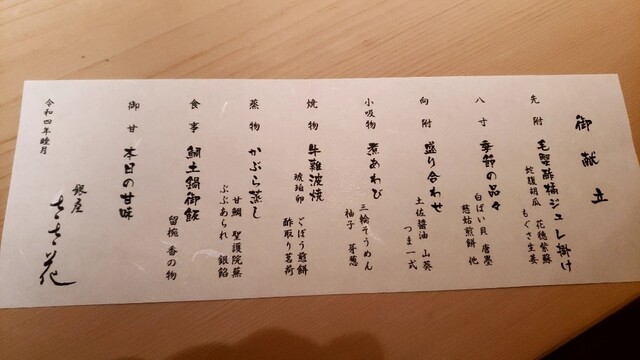 御献立
先附 毛蟹酢橘ジュレ掛け
蛇腹胡瓜 花穂紫蘇
もぐさ生姜
八寸 季節の品々
白ばい貝 唐墨
慈姑煎餅 他
向附 盛り合わせ
土佐醤油 山葵
つま一式
小吸物 煮あわび
三輪そうめん
柚子 芽葱
焼物 牛難波焼
琥珀卵 ごぼう煎餅
酢取り茗荷
蒸物 かぶら蒸し
甘鯛 聖護院蕪
ぶぶあられ 銀餡
食事 鯛土鍋御飯
留椀 香の物
御甘 本日の甘味
令和四年睦月
銀座 ささ花